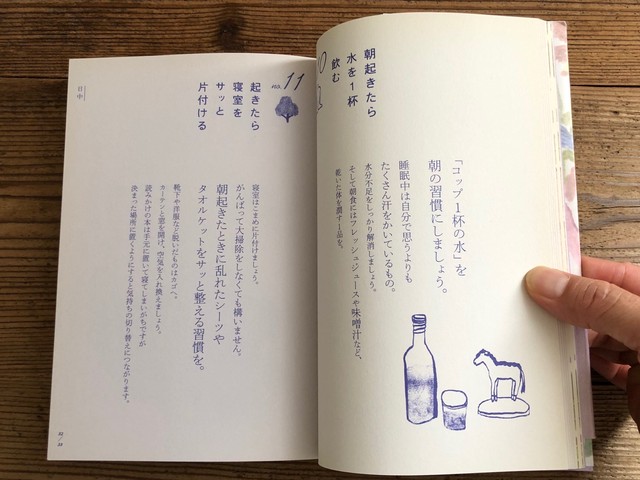 朝起きたら
水を1杯
飲む
「コップ1杯の水」を
朝の習慣にしましょう。
睡眠中は自分で思うよりも
たくさん汗をかいているもの。
水分不足をしっかり解消しましょう。
そして朝食にはフレッシュジュースや味噌汁など、
乾いた体を潤す1品を。
no. 11
起きたら
寝室を
サッと
片付ける
寝室はこまめに片付けましょう。
がんばって大掃除をしなくても構いません。
朝起きたときに乱れたシーツや
タオルケットをサッと整える習慣を。
靴下や洋服など脱いだものはカゴへ。
カーテンと窓を開け、空気を入れ換えましょう。
読みかけの本は手元に置いて寝てしまいがちですが
決まった場所に置くようにすると気持ちの切り替えにつながります。